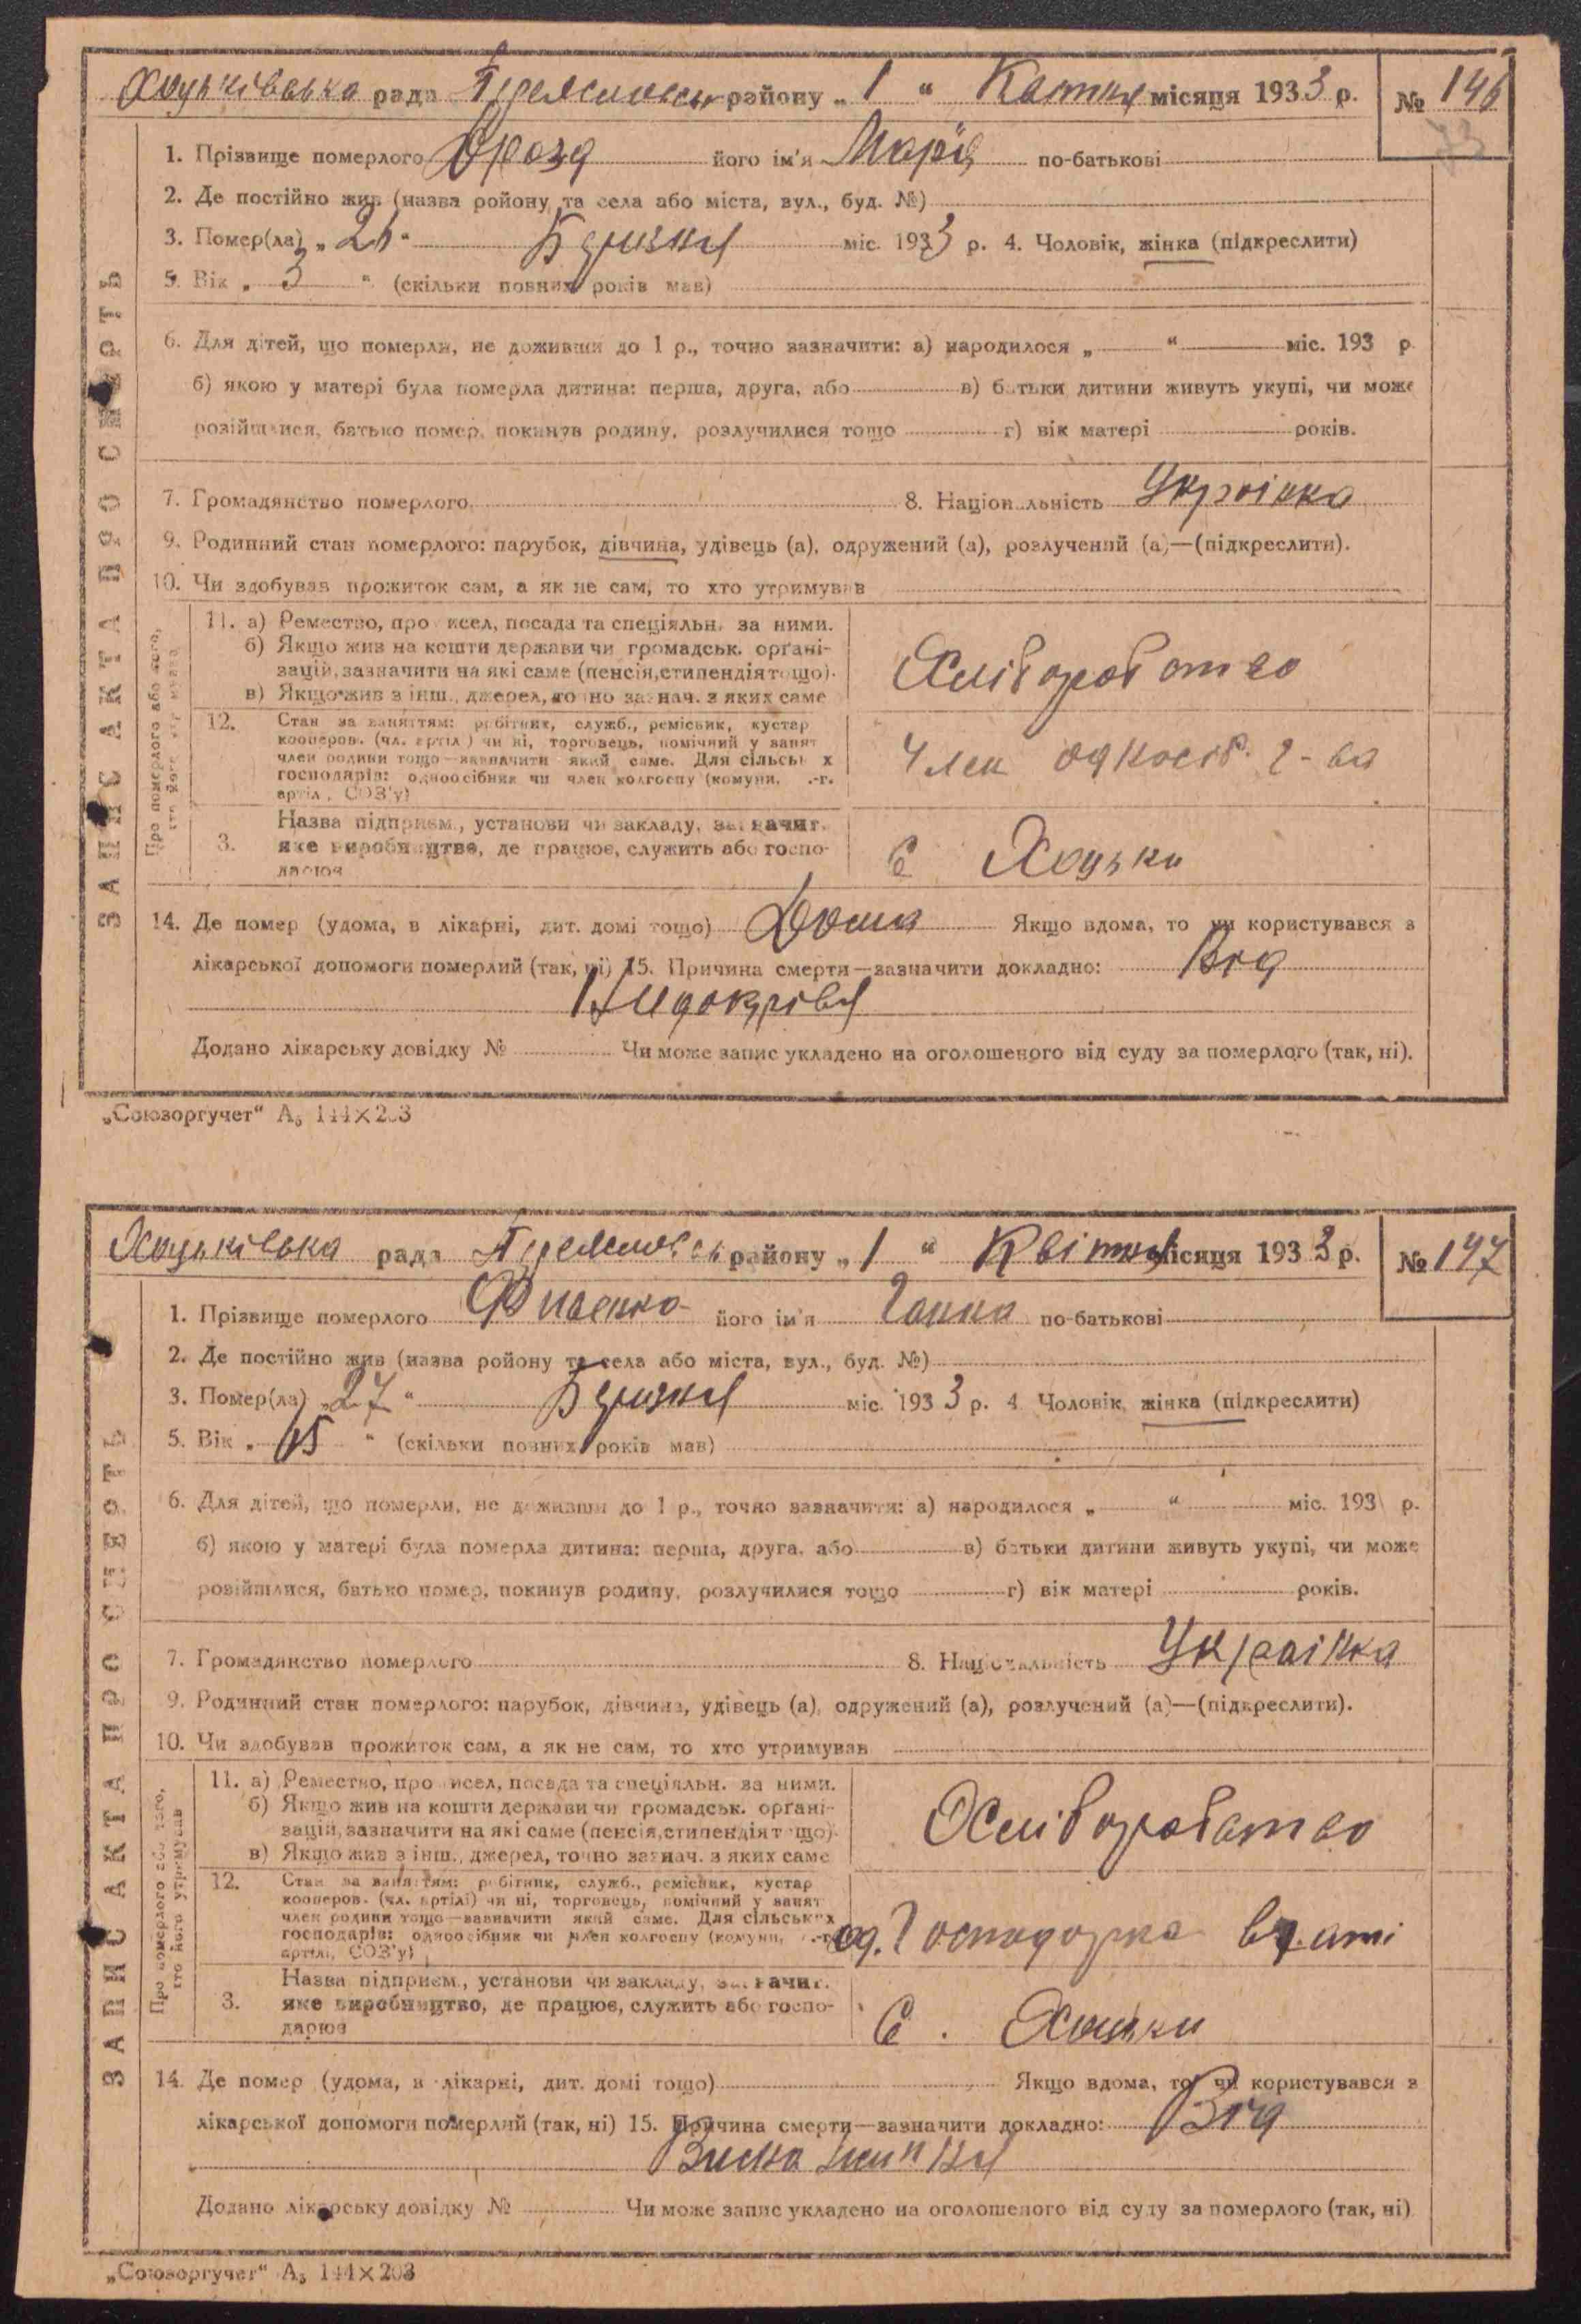 Хоцьківська рада Переяславськ району „ 1 “ Квітня місяця 1933 р. № 146
73
1. Прізвище померлого Дрозд його ім'я Марія по-батькові
2. Де постійно жив (назва ройону та села або міста, вул., буд. №)
3. Помер(ла) „ “ Березня міс. 1933 р. 4. Чоловік, жінка (підкреслити)
5. Вік „ 3 “ (скільки повних років мав)
6. Для дітей, що померли, не доживши до 1 р., точно зазначити: а) народилося „ “ міс. 193 р
б) якою у матері була померла дитина: перша, друга, або в) батьки дитини живуть укупі, чи може
розійшлися, батько помер, покинув родину, розлучилися тощо г) вік матері років.
7. Громадянство померлого 8. Національність Українка
9. Родинний стан померлого: парубок, дівчина, удівець (а), одружений (а), розлучений (а)—(підкреслити).
10. Чи здобував прожиток сам, а як не сам, то хто утримував
ЗАПИС АКТА ПРО СМЕРТЬ
Про померлого або того, хто його утримував
11. а) Ремество, промисел, посада та спеціяльн. за ними.
б) Якщо жив на кошти держави чи громадськ. орґані-
зацій, зазначити на які саме (пенсія, стипендія тощо).
в) Якщо жив з інш., джерел, точно зазнач. з яких саме
Хліборобство
12. Стан за заняттям: робітник, служб., ремісник, кустар
кооперов. (чл. артілі) чи ні, торговець, помічний у занят
член родини тощо—зазначити який саме. Для сільськ х
господарів: одноосібник чи член колгоспу (комуни, .-г.
артіл, СОЗ'у)
Член однос г-ва
3. Назва підприєм., установи чи закладу, зазначит.
яке виробництво, де працює, служить або госпо-
дарює
с Хоцьки
14. Де помер (удома, в лікарні, дит. домі тощо) Дома Якщо вдома, то чи користувався з
лікарської допомоги померлий (так, ні) 15. Причина смерти—зазначити докладно: Від
Недокрівя
Додано лікарську довідку № Чи може запис укладено на оголошеного від суду за померлого (так, ні).
„Союзоргучет“ А₅ 144×203
Хоцьківська рада Переяславськ району „ 1 “ Квітня місяця 1933 р. № 147
1. Прізвище померлого його ім'я Ганна по-батькові
2. Де постійно жив (назва ройону та села або міста, вул., буд. №)
3. Помер(ла) „ 27 “ Березня міс. 1933 р. 4. Чоловік, жінка (підкреслити)
5. Вік „ “ (скільки повних років мав)
6. Для дітей, що померли, не доживши до 1 р., точно зазначити: а) народилося „ “ міс. 193 р.
б) якою у матері була померла дитина: перша, друга, або в) батьки дитини живуть укупі, чи може
розійшлися, батько помер, покинув родину, розлучилися тощо г) вік матері років.
7. Громадянство померлого 8. Національність Українка
9. Родинний стан померлого: парубок, дівчина, удівець (а), одружений (а), розлучений (а)—(підкреслити).
10. Чи здобував прожиток сам, а як не сам, то хто утримував
ЗАПИС АКТА ПРО СМЕРТЬ
Про померлого або того, хто його утримував
11. а) Ремество, промисел, посада та спеціяльн. за ними.
б) Якщо жив на кошти держави чи громадськ. орґані-
зацій, зазначити на які саме (пенсія, стипендія тощо).
в) Якщо жив з інш., джерел, точно зазнач. з яких саме
Хліборобство
12. Стан за заняттям: робітник, служб., ремісник, кустар
кооперов. (чл. артілі) чи ні, торговець, помічний у занят
член родини тощо—зазначити який саме. Для сільських
господарів: одноосібник чи член колгоспу (комуни, .-г.
артілі, СОЗ'у)
од. Господарка
3. Назва підприєм., установи чи закладу, зазначит.
яке виробництво, де працює, служить або госпо-
дарює
с. Хоцьки
14. Де помер (удома, в лікарні, дит. домі тощо) Якщо вдома, то чи користувався з
лікарської допомоги померлий (так, ні) 15. Причина смерти—зазначити докладно: Від
Виснаження
Додано лікарську довідку № Чи може запис укладено на оголошеного від суду за померлого (так, ні)
„Союзоргучет“ А₅ 144×203